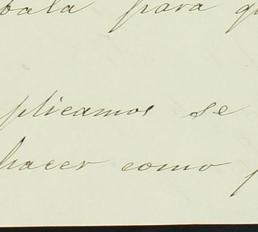 bala para qu
plicamos se
hacer como p